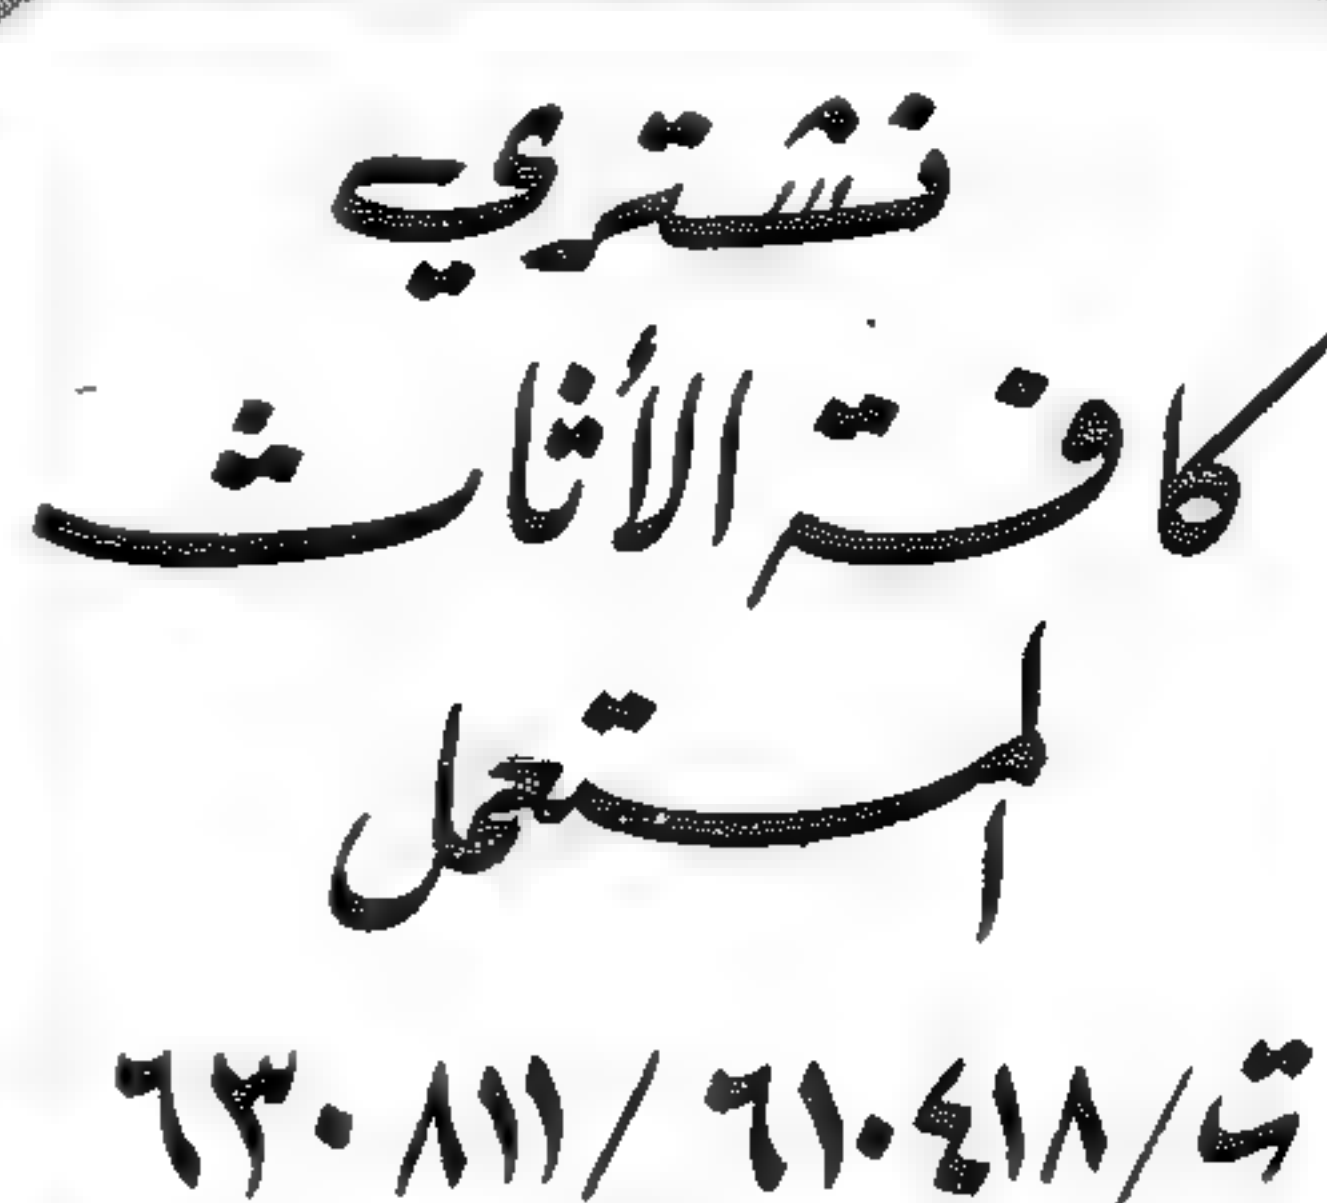 نشتري
كافة الأثاث
المستعمل
ت/٦١٠٤١٨ /٦٣٠٨١١